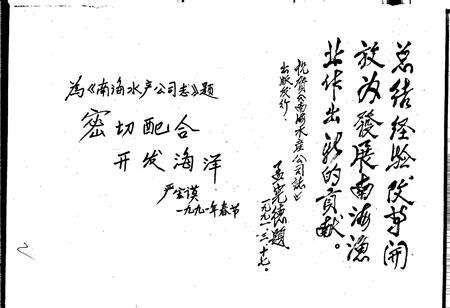 为《南海水产公司志》题
密切配合
开发海洋
严宏谟
一九九一年春节
总结经验改革开
放为發展南海漁
业作出新的贡献。
祝贺《南海水产公司誌》
出版发行。
孟宪德題
一九九一.三.十七.